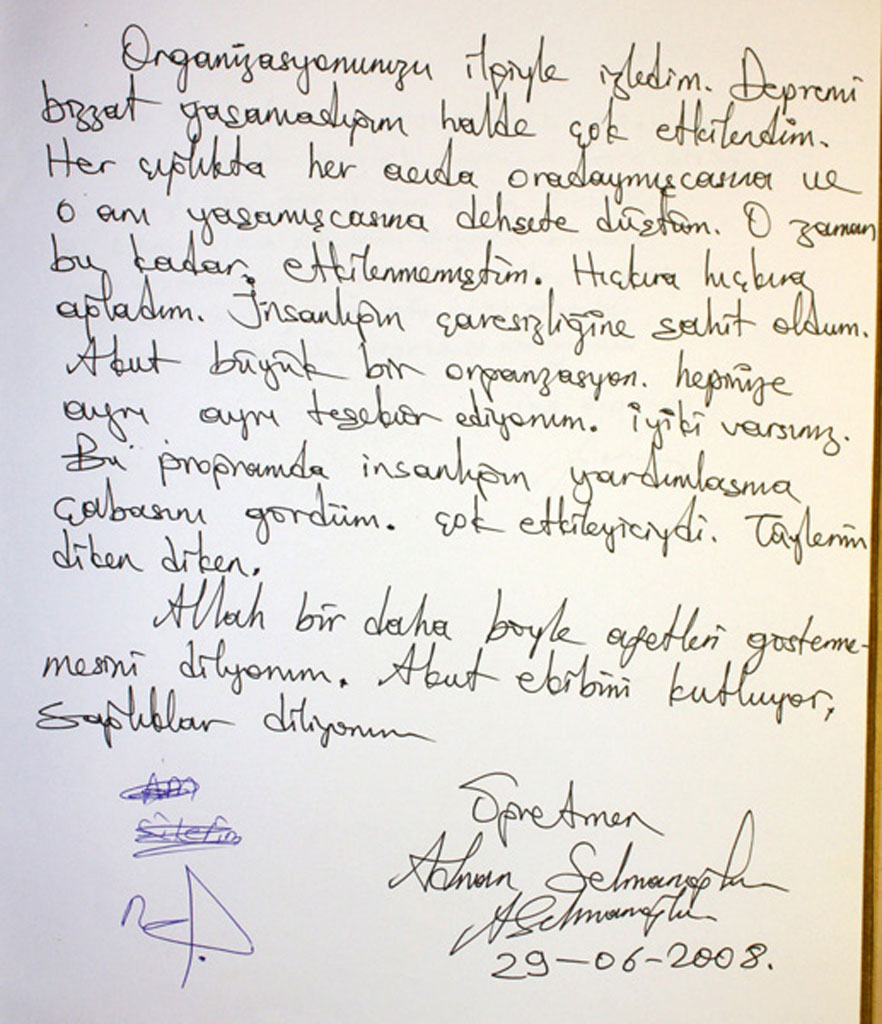 Organizasyonunuzu ilgiyle izledim. Depremi
bizzat yaşamadığım halde çok etkilendim.
Her çığlıkta her acıda oradaymışcasına ve
o anı yaşamışcasına dehşete düştüm. O zaman
bu kadar etkilenmemiştim. Hıçkıra hıçkıra
ağladım. İnsanlığın çaresizliğine şahit oldum.
Akut büyük bir organizasyon. hepinize
ayrı ayrı teşekür ediyorum. iyiki varsınız.
Bu programda insanlığın yardımlaşma
çabasını gördüm. çok etkileyiciydi. Tüylerim
diken diken.
Allah bir daha böyle afetleri gösterme-
mesini diliyorum. Akut ekibini kutluyor,
sağlıklar diliyorum
Öğretmen
Adnan Selmanoğlu
ASelmanoğlu
29-06-2008.